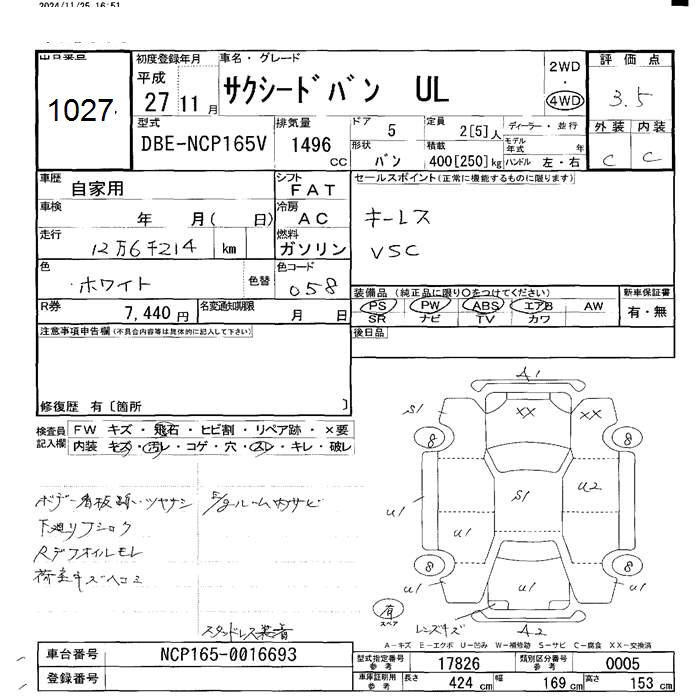 2024/11/25 16:51
出品番号
1027
初度登録年月
平成 27 11月
車名・グレード
サクシードバン UL
2WD
・
4WD
評価点
3.5
型式
DBE-NCP165V
排気量
1496 cc
ドア 5
形状 バン
定員 2[5]人
積載 400[250]kg
ディーラー・並行
モデル年式 年
ハンドル 左・右
外装 内装
C C
車歴 自家用
シフト FAT
セールスポイント(正常に機能するものに限ります)
車検 年 月( 日)
冷房 AC
キーレス
走行 12万6千214 km
燃料 ガソリン
VSC
色 ホワイト 色替
色コード 058
装備品 (純正品に限り○をつけてください)
新車保証書
PS PW ABS エアB AW
有・無
R券 7,440円
名変通知期限 月 日
SR ナビ TV カワ
注意事項申告欄(不具合内容等は具体的に記入して下さい)
後日品
修復歴 有〔箇所 〕
検査員記入欄
FW キズ・飛石・ヒビ割・リペア跡・×要
内装 キズ・汚レ・コゲ・穴・スレ・キレ・破レ
ボデー看板跡・ツヤナシ
下廻リフショク
Rデフオイルモレ
荷室キズヘコミ
スタッドレス装着
A1
S1 XX XX
8 8
S1 U2
U1 U1
8 8
U1 U1 U1
有
スペア
レンズキズ
A2
A-キズ E-エクボ U-凹み W-補修跡 S-サビ C-腐食 XX-交換済
車台番号 NCP165-0016693
型式指定番号 参考 17826
類別区分番号 参考 0005
登録番号
車庫証明用 参考 長さ 424 cm 幅 169 cm 高さ 153 cm